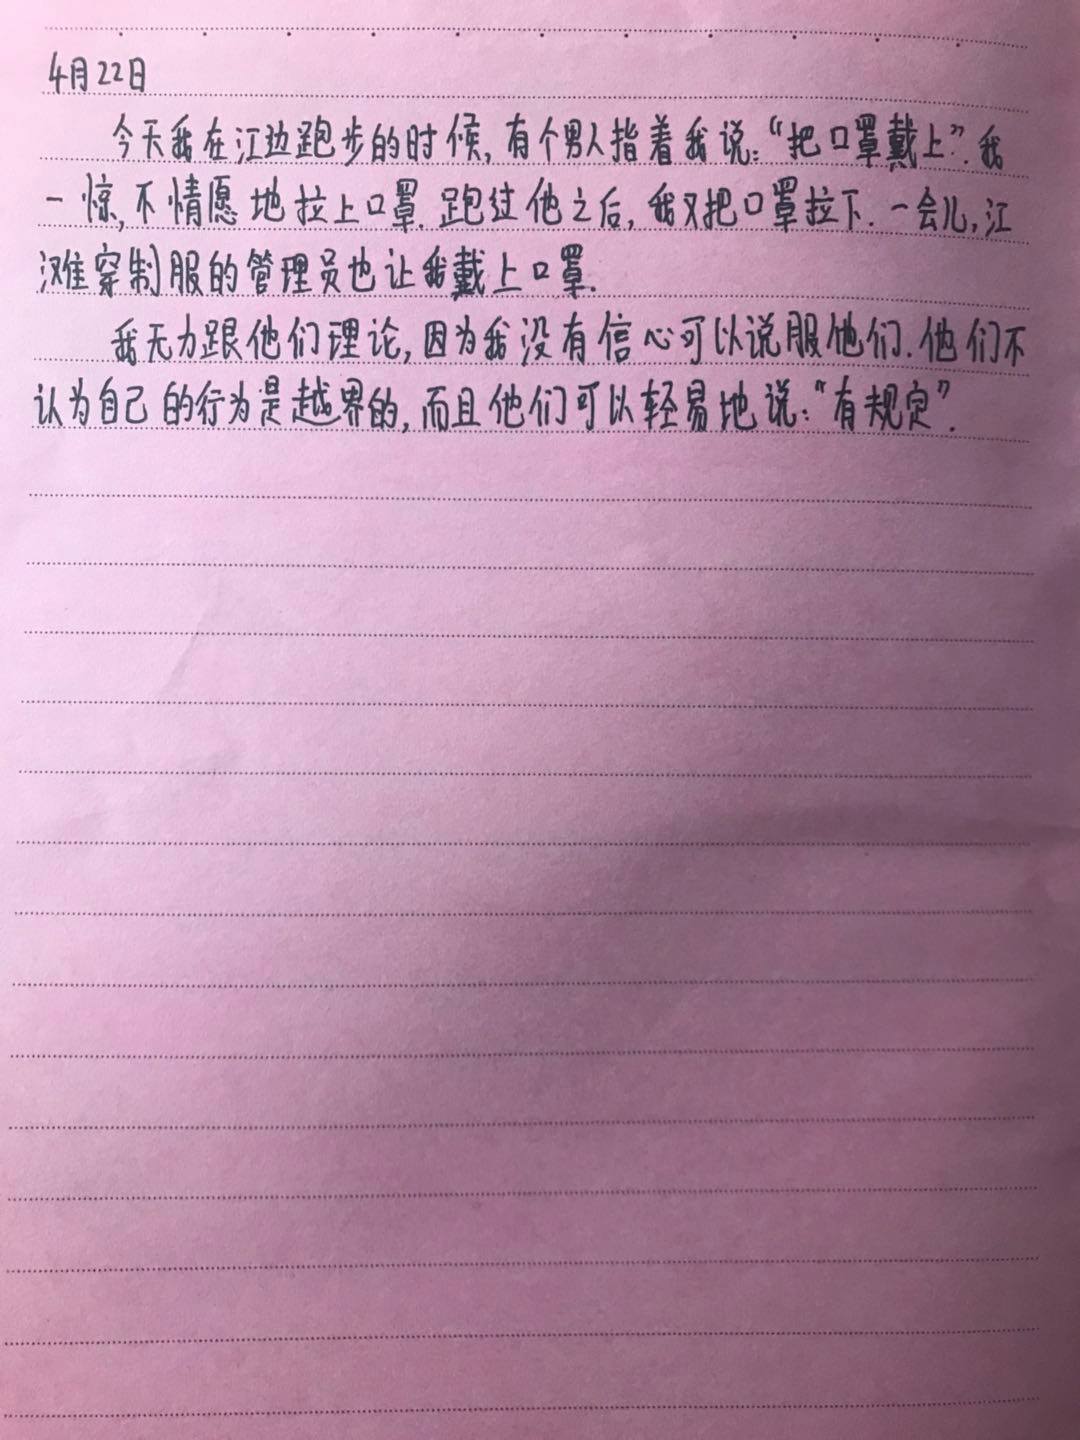 4月22日
今天我在江边跑步的时候,有个男人指着我说:“把口罩戴上”.我
一惊,不情愿地拉上口罩.跑过他之后,我又把口罩拉下.一会儿,江
滩穿制服的管理员也让我戴上口罩.
我无力跟他们理论,因为我没有信心可以说服他们.他们不
认为自己的行为是越界的,而且他们可以轻易地说:“有规定”.